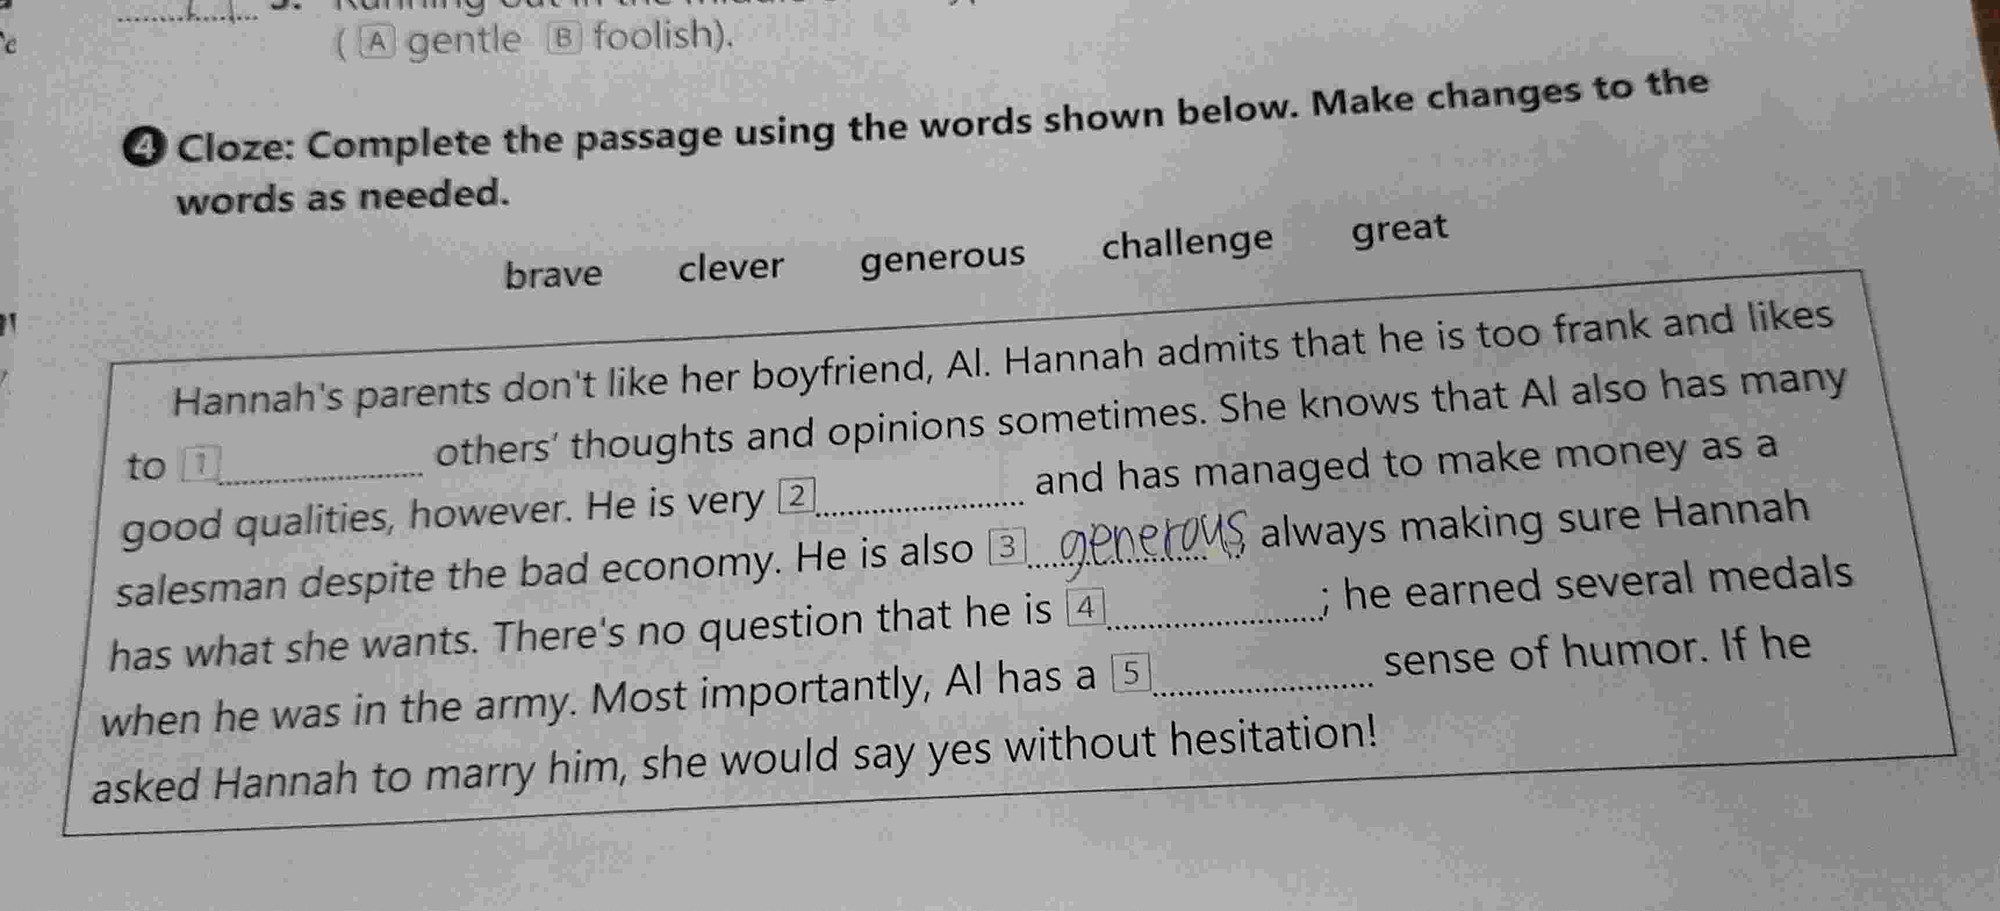 ( A gentle B foolish).
4 Cloze: Complete the passage using the words shown below. Make changes to the
words as needed.
brave clever generous challenge great
Hannah's parents don't like her boyfriend, Al. Hannah admits that he is too frank and likes
to 1 .................... others' thoughts and opinions sometimes. She knows that Al also has many
good qualities, however. He is very 2 .................... and has managed to make money as a
salesman despite the bad economy. He is also 3 generous, always making sure Hannah
has what she wants. There's no question that he is 4 ....................; he earned several medals
when he was in the army. Most importantly, Al has a 5 .................... sense of humor. If he
asked Hannah to marry him, she would say yes without hesitation!